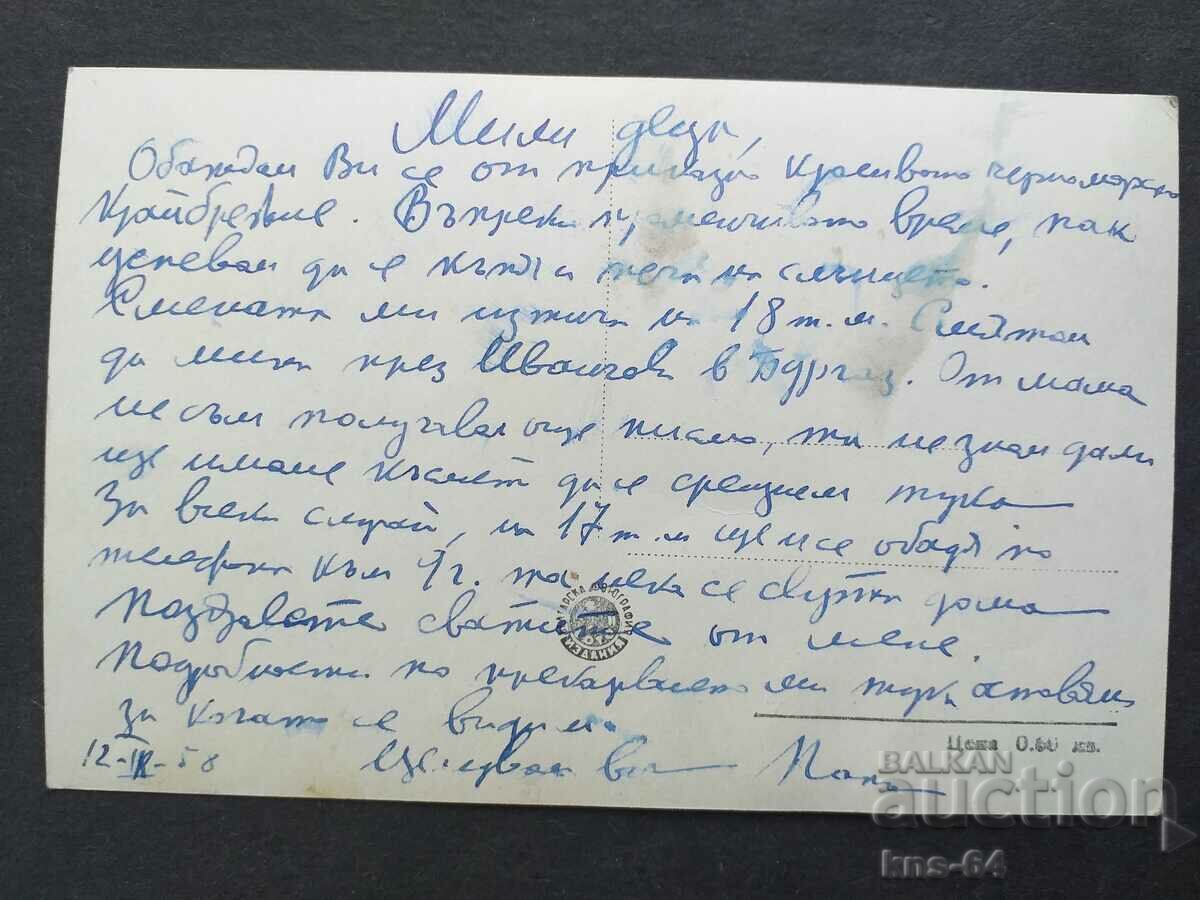 Мили деца,
Обаждам Ви се от приказно красивото черноморско
Крайбрежие. Въпреки променчивото време, пак
успевам да се къпя и пека на слънцето.
Смената ми изтича на 18 т.м. Смятам
да мина през Иванчови в Бургас. От мама
не съм получавал още писмо, та не знам дали
ще имаме късмет да се срещнем тука
За всеки случай, на 17 т.м ще се обадя по
телефона към 9 г. та нека се случи дома
Поздравете сватите от мене.
Подробности по прекарването ми тука оставям
за когато се видим.
12-IX-58 Целувам ви Папа
БЪЛГАРСКА ФОТОГРАФИЯ ИЗДАНИЯ
Цена 0.60 лв.
BALKAN auction
kns-64